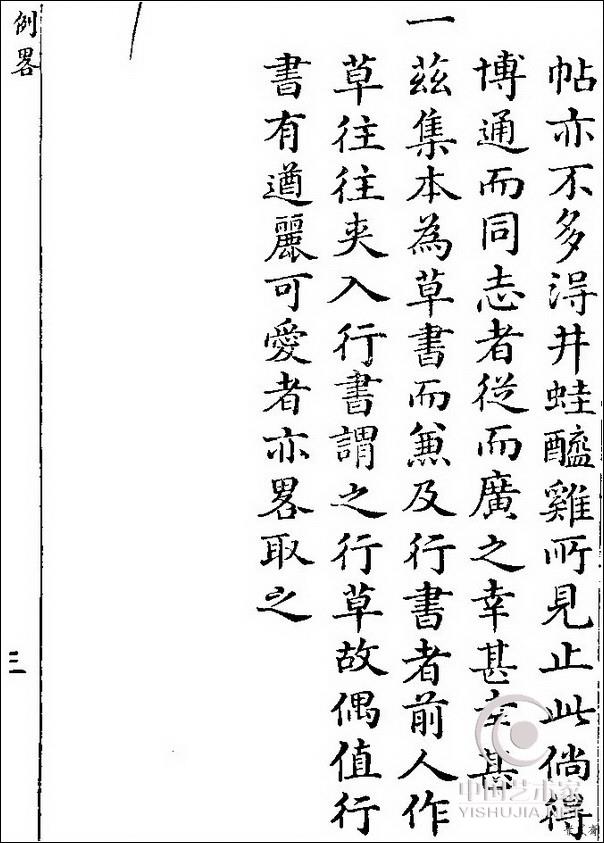 帖亦不多淂井蛙醯雞所見止此倘得
博通而同志者從而廣之幸甚甚
一茲集本為草書而兼及行書者前人作
草往往夾入行書謂之行草故偶值行
書有遒麗可愛者亦畧取之
例畧
三
中国艺术家
YISHUJIA.NET